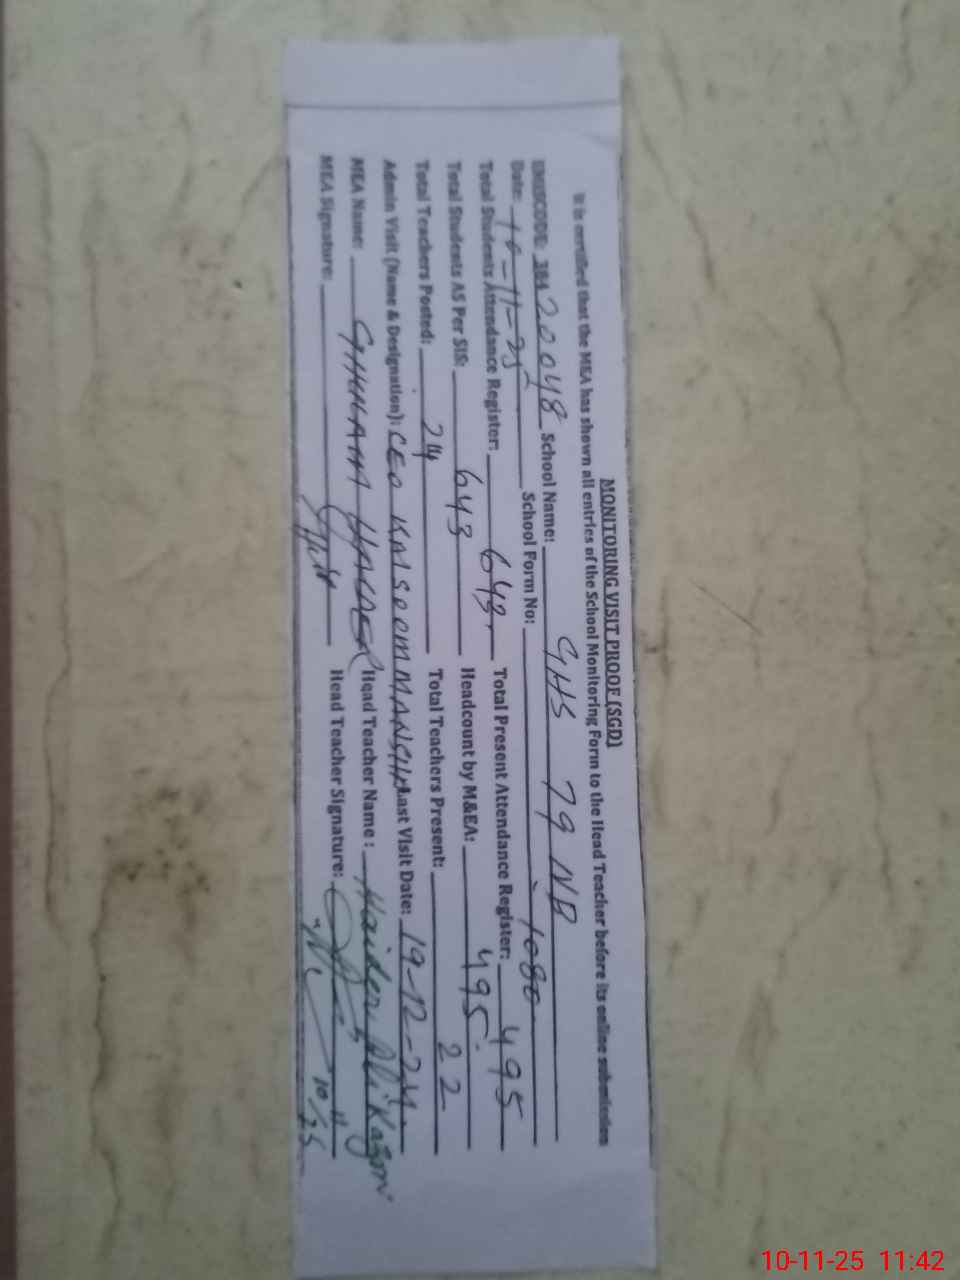 MONITORING VISIT PROOF (SGD)
It is certified that the MEA has shown all entries of the School Monitoring Form to the Head Teacher before its online submission
EMISCODE: 38420048 School Name: GHS 79 NB
Date: 10-11-25 School Form No: 1080
Total Students Attendance Register: 643 Total Present Attendance Register: 495
Total Students AS Per SIS: 643 Headcount by M&EA: 495
Total Teachers Posted: 24 Total Teachers Present: 22
Admin Visit (Name & Designation): CEO Last Visit Date: 19-12-24
MEA Name: GHULAM HAIDER Head Teacher Name: Haider Ali Kazmi
MEA Signature: Head Teacher Signature:
10/11/25
10-11-25 11:42